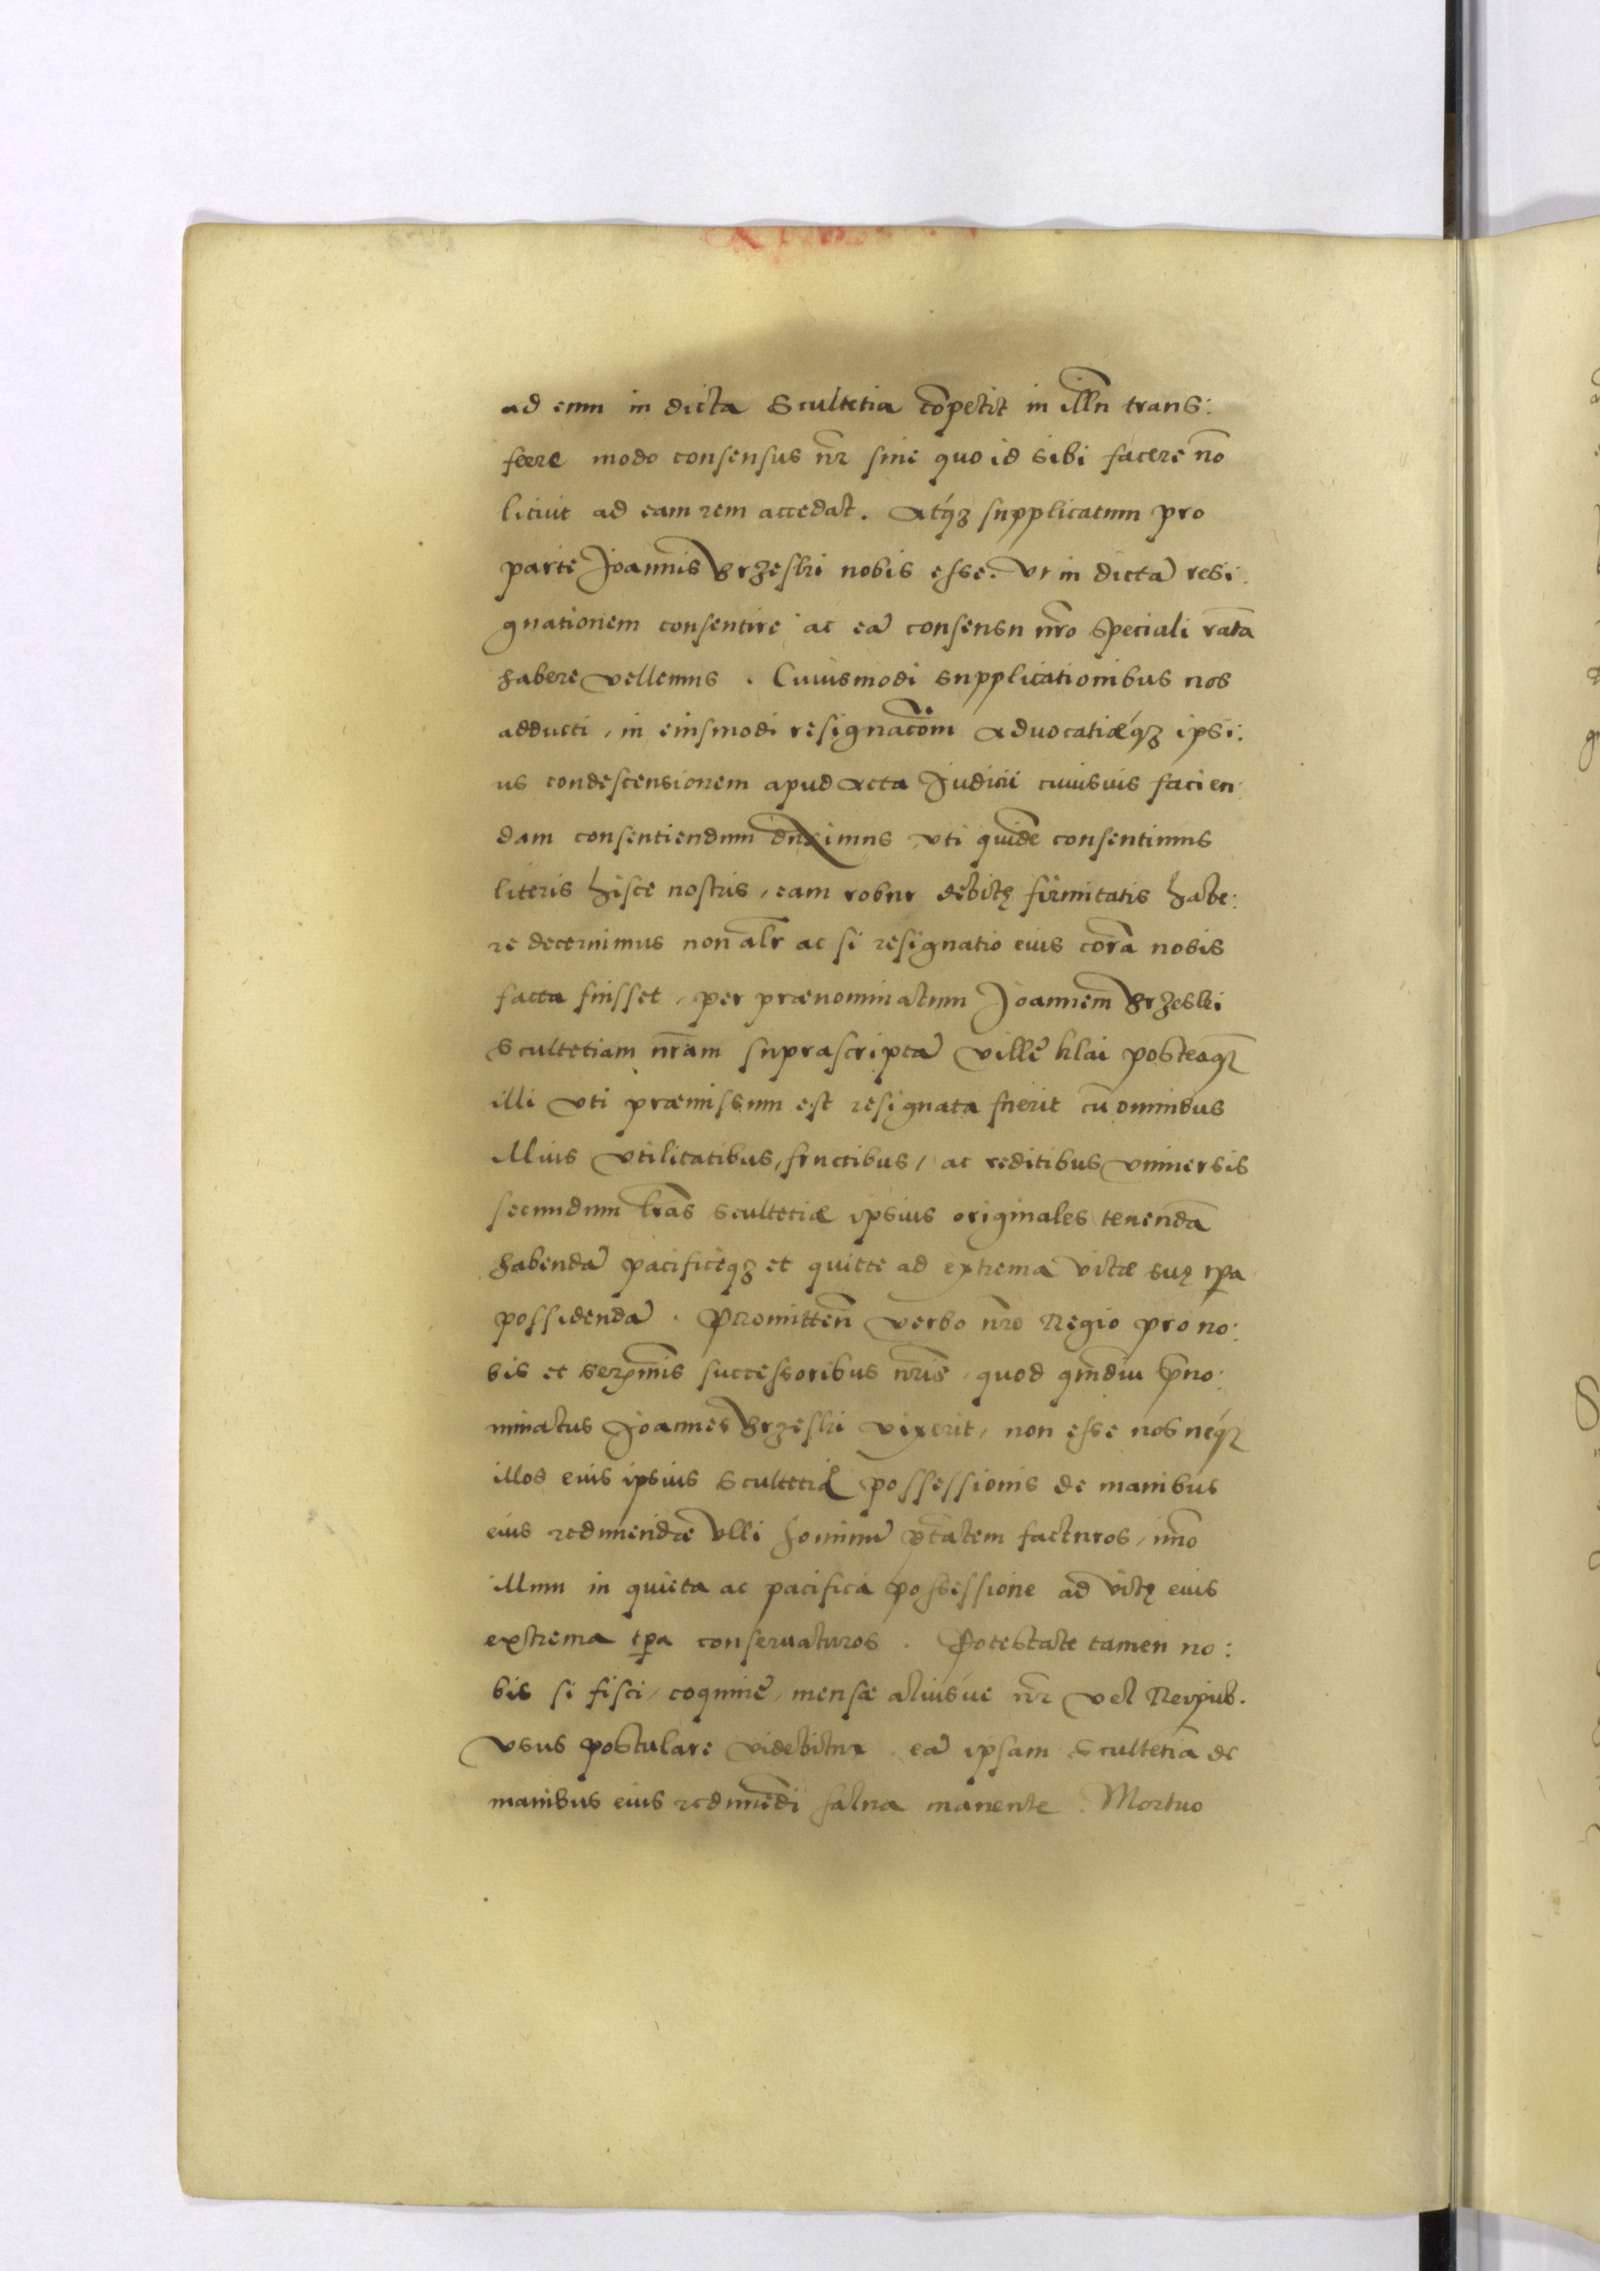 ad eum in dicta Scultetia cōpetit in illū trans:
ferre modo consensus nr̄ sine quo id sibi facere nō
licuit ad eam rem accedat. Atq́ꝫ supplicatum pro
parte Joannis Brzeski nobis esse. Vt in dictā resi:
gnationem consentire ac eā consensu nr̄o speciali ratā
habere vellemus. Cuiusmodi supplicationibus nos
adducti, in eiusmodi resignacōm Aduocatiæq́ꝫ ipsi:
us condescensionem apud Acta Judicii cuiusuis facien:
dam consentiendum duximus vti quidē consentimus
literis hisce nostris, eam robur debitę firmitatis habe:
re decernimus non alr̄ ac si resignatio eius corā nobis
facta fuisset, per prænominatum Joannem Brzeski
Scultetiam nr̄am suprascriptā villę Klai posteaqꝫ
illi vti præmissum est resignata fuerit cū omnibus
illius vtilitatibus, fructibus, ac reditibus vniuersis
secundum lr̄as scultetiæ ipsius originales tenendā
habendā pacificeqꝫ et quiete ad extrema vitæ suę tp̄a
possidendā. Promitten̄ verbo nr̄o Regio pro no:
bis et serm̄is successoribus nr̄is, quod qm̄diu p̄no:
minatus Joannes Brzeski vixerit, non esse nos neq́ꝫ
illos eius ipsius Scultetiæ possessionis de manibus
eius redimendæ vlli hominū p̄tatem facturos, im̄o
illum in quieta ac pacifica possessione ad vitę eius
extrema tp̄a conseruaturos. Potestate tamen no:
bis si fisci, coquinę, mensæ aliusúe nr̄i vel Reipub.
vsus postulare videbitur eā ipsam Scultetiā de
manibus eius redimēdi salua manente. Mortuo